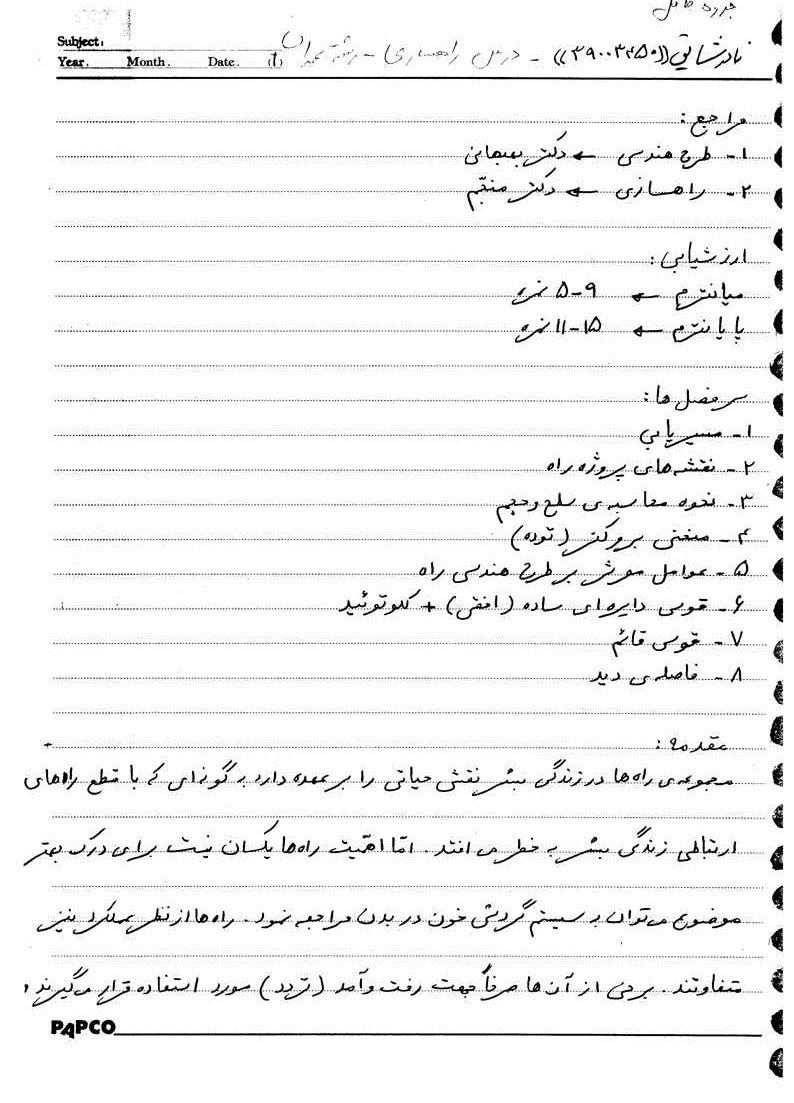 جزوه کامل
Subject:
Year. Month. Date. (1)
نادر شاتی ((39003350)) - درس راهسازی - رشته عمران
مراجع:
۱- طرح هندسی ← دکتر بهبهانی
۲- راهسازی ← دکتر منجّم
ارزشیابی:
میانترم ← ۹-۵ نمره
پایانترم ← ۱۵-۱۱ نمره
سرفصل ها:
۱- مسیریابی
۲- نقشه‌های پروژه راه
۳- نحوه محاسبه‌ی سطح و حجم
۴- منحنی بروکنر (توده)
۵- عوامل موثر بر طرح هندسی راه
۶- قوسی دایره ای ساده (افقی) + کلوتوئید
۷- قوس قائم
۸- فاصله‌ی دید
مقدمه:
مجموعه‌ی راه‌ها در زندگی بشر نقش حیاتی را بر عهده دارد به گونه‌ای که با قطع راه‌های
ارتباطی زندگی بشر به خطر می افتد. اما اهمیت راه‌ها یکسان نیست برای درک بهتر
موضوع می‌توان به سیستم گردش خون در بدن مراجعه نمود. راه‌ها از نظر عملکرد نیز
متفاوتند. برخی از آن‌ها صرفاً جهت رفت و آمد (تردد) مورد استفاده قرار می‌گیرند و
PAPCO